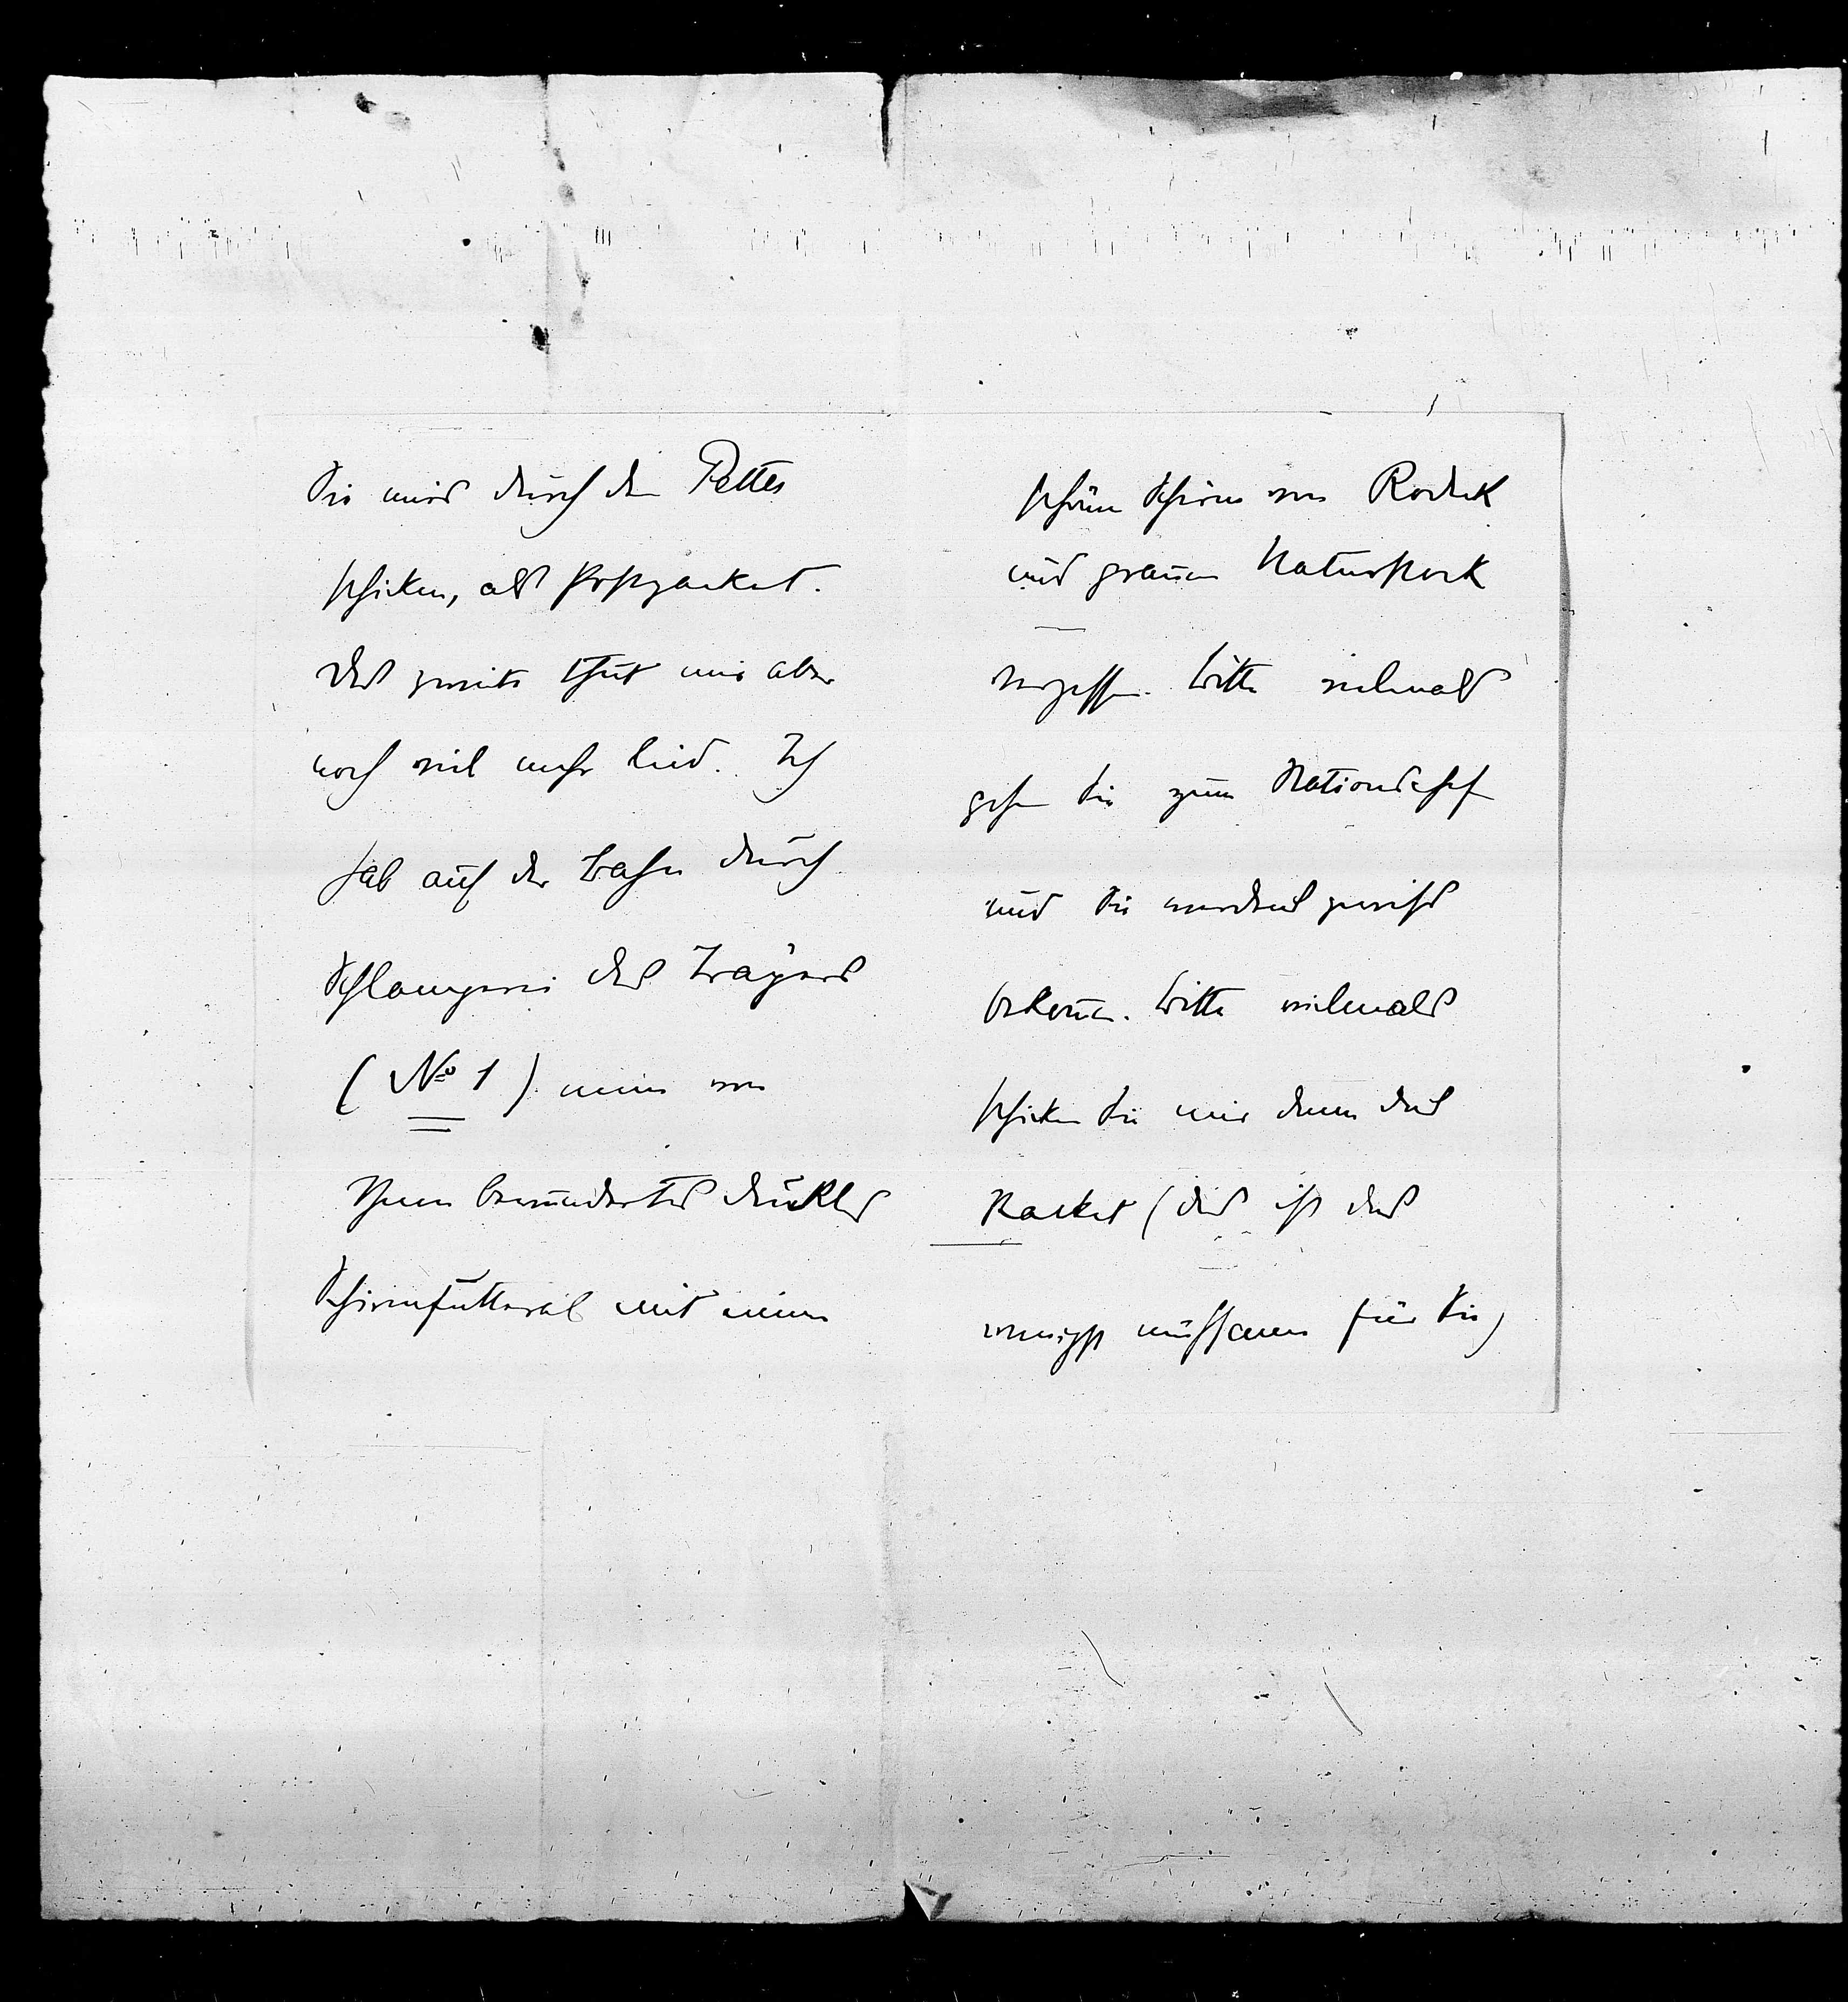 Sie mirs durch den Pettes
schicken, als Postpacket.
Das zweite thut mir aber
noch viel mehr leid. Ich
hab auf der Bahn durch
Schlamperei des Trägers
(No 1) mein von
Ihnen bewundertes dunkles
Schirmfutteral mit einem
schönen Schirm von Rodeck
und grauen Naturstock
vergessen. Bitte vielmals
gehen Sie zum Stationschef
und Sie werdens gewiss
bekommen. Bitte vielmals
schicken Sie mir dann das
Racket (das ist das
wenigst mühsame für Sie)